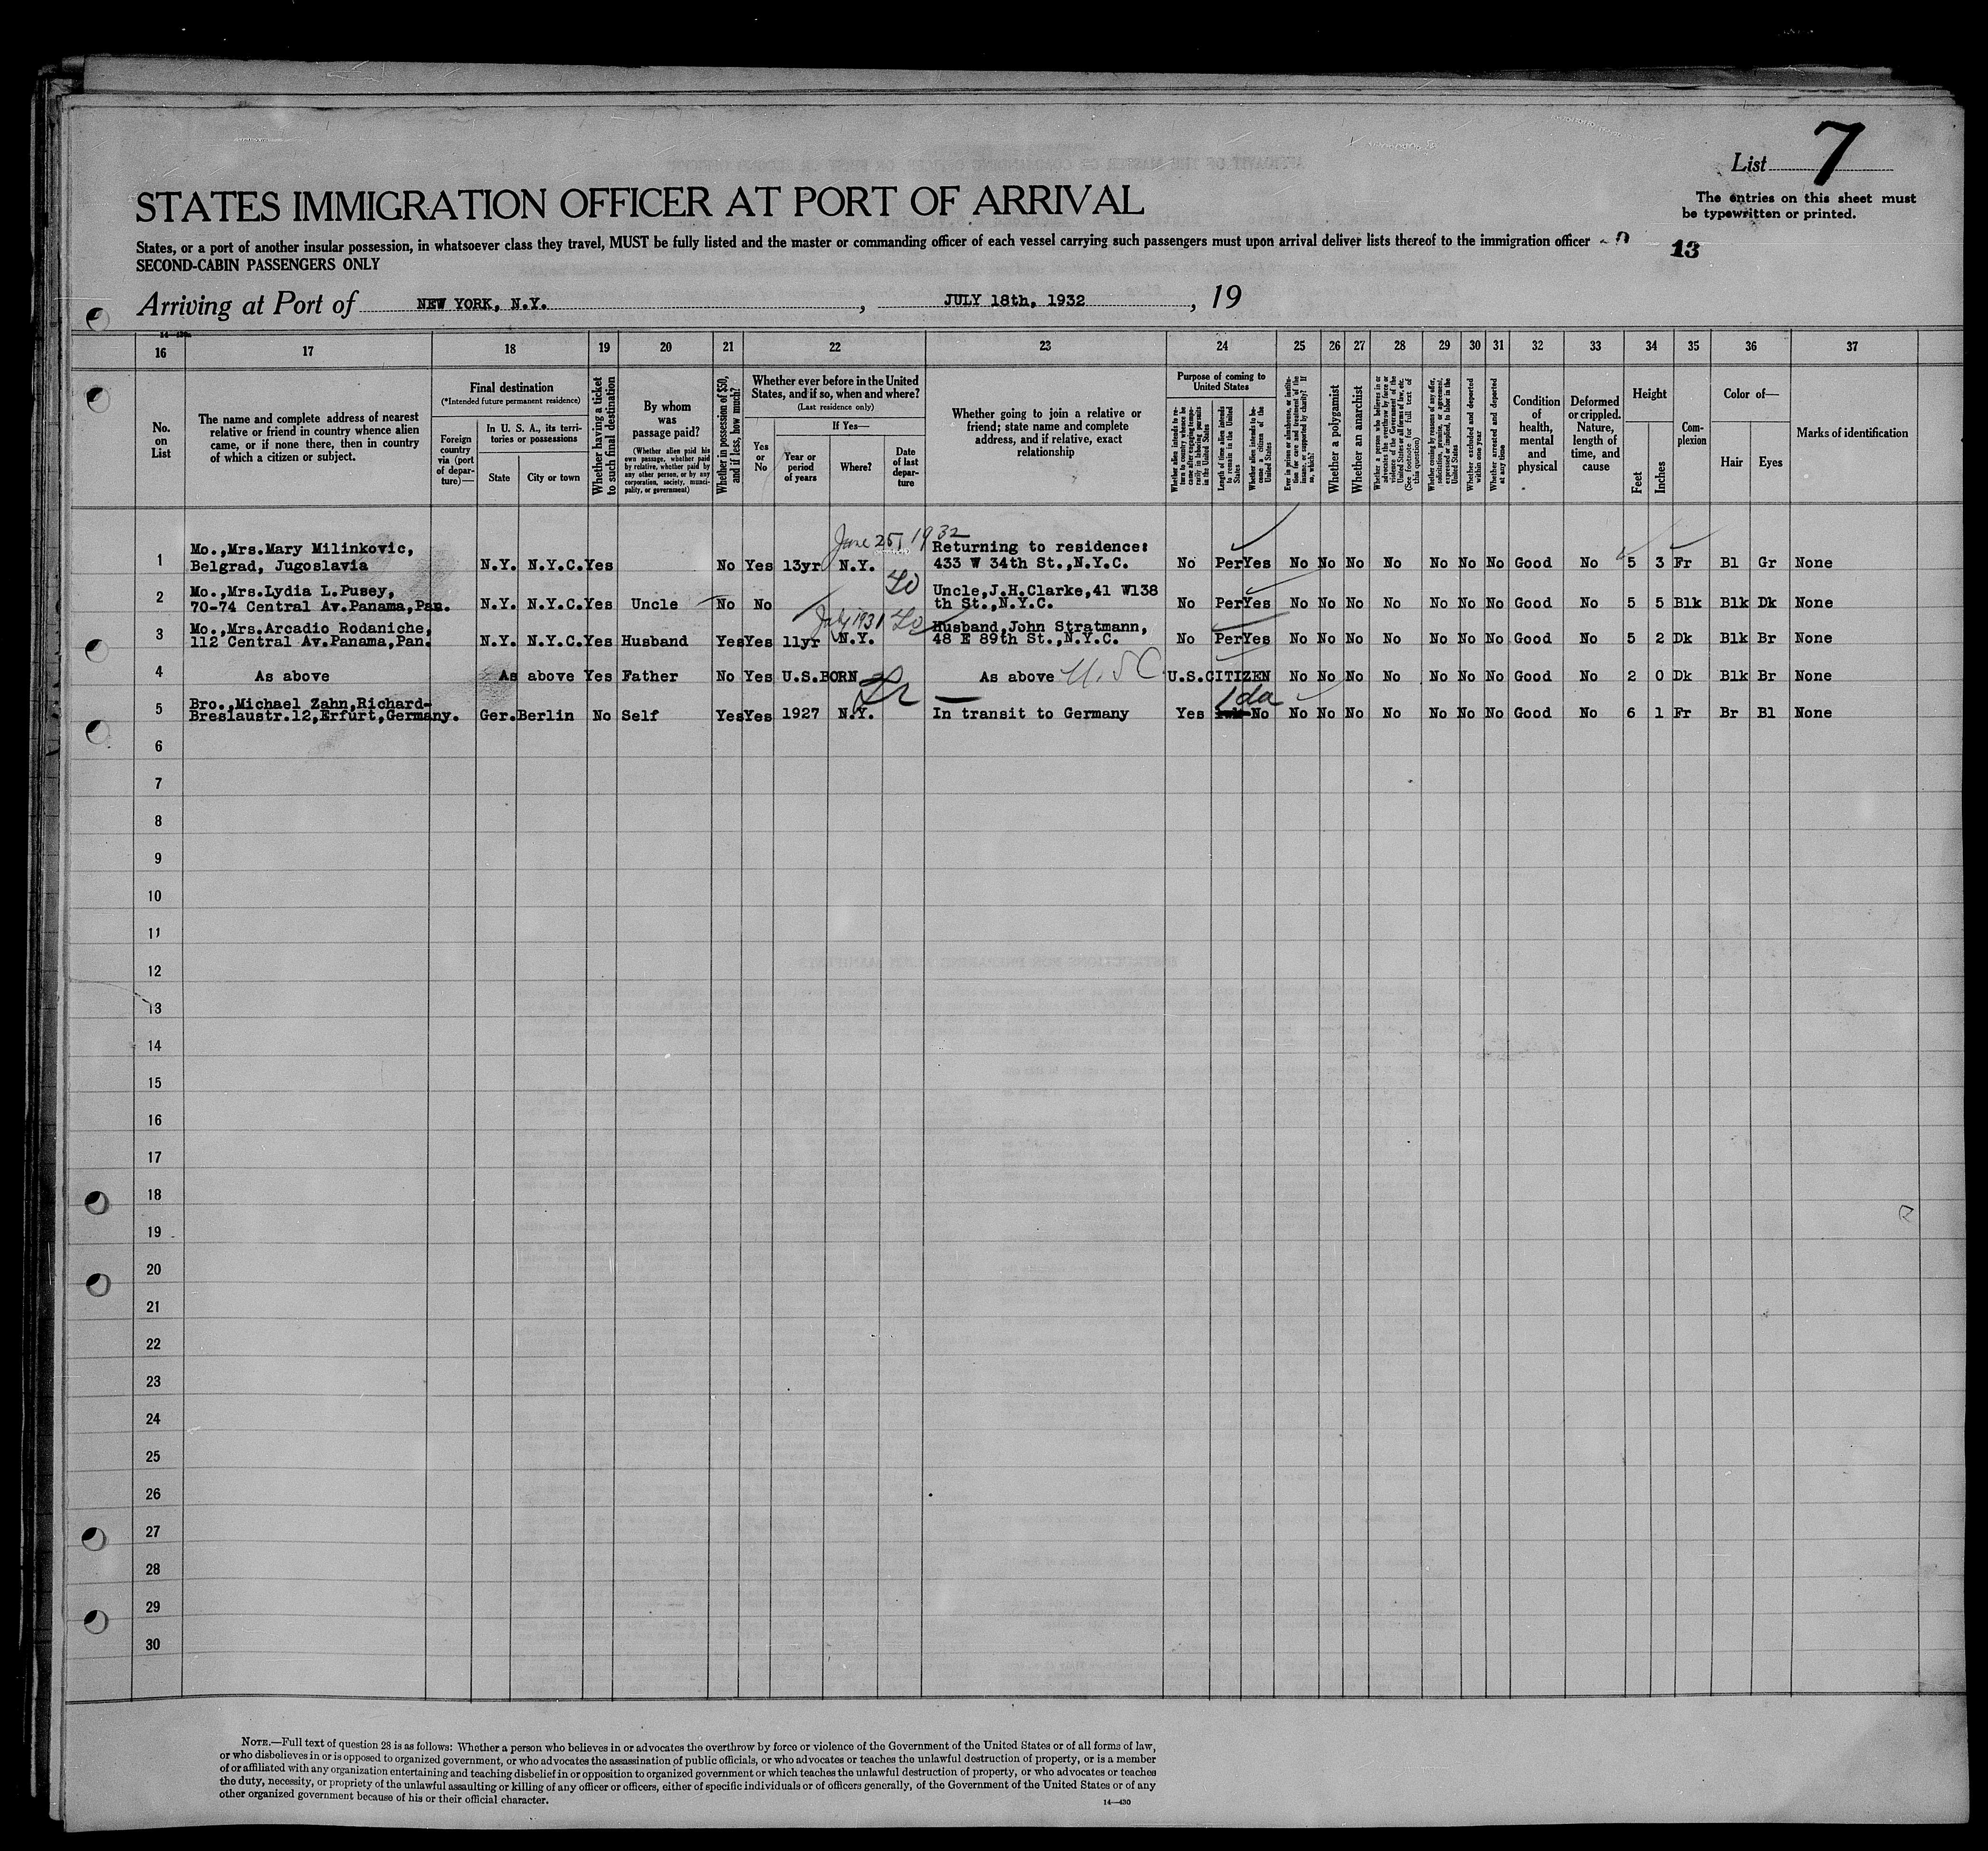 List 7
The entries on this sheet must
be typewritten or printed.
STATES IMMIGRATION OFFICER AT PORT OF ARRIVAL
States, or a port of another insular possession, in whatsoever class they travel, MUST be fully listed and the master or commanding officer of each vessel carrying such passengers must upon arrival deliver lists thereof to the immigration officer
13
SECOND-CABIN PASSENGERS ONLY
Arriving at Port of NEW YORK, N.Y. , JULY 18th, 1932 , 19
16 17 18 19 20 21 22 23 24 25 26 27 28 29 30 31 32 33 34 35 36 37
No.
on
List
The name and complete address of nearest
relative or friend in country whence alien
came, or if none there, then in country
of which a citizen or subject.
Final destination
(*Intended future permanent residence)
Foreign
country
via (port
of depar-
ture)—
In U. S. A., its terri-
tories or possessions
State
City or town
Whether having a ticket
to such final destination
By whom
was
passage paid?
(Whether alien paid his
own passage, whether paid
by relative, whether paid by
any other person, or by any
corporation, society, munici-
pality, or government)
Whether in possession of $50,
and if less, how much?
Whether ever before in the United
States, and if so, when and where?
(Last residence only)
Yes
or
No
If Yes—
Year or
period
of years
Where?
Date
of last
depar-
ture
Whether going to join a relative or
friend; state name and complete
address, and if relative, exact
relationship
Purpose of coming to
United States
Whether alien intends to re-
turn to country whence he
came after engaging tempo-
rarily in laboring pursuits
in the United States
Length of time alien intends
to remain in the United
States
Whether alien intends to be-
come a citizen of the
United States
Ever in prison or almshouse, or institu-
tion for care and treatment of the
insane, or supported by charity? If
so, which?
Whether a polygamist
Whether an anarchist
Whether a person who believes in or
advocates the overthrow by force or
violence of the Government of the
United States or all forms of law, etc.
(See footnote for full text of
this question)
Whether coming by reason of any offer,
solicitation, promise, or agreement,
expressed or implied, to labor in the
United States
Whether excluded and deported
within one year
Whether arrested and deported
at any time
Condition
of
health,
mental
and
physical
Deformed
or crippled.
Nature,
length of
time, and
cause
Height
Feet
Inches
Com-
plexion
Color of—
Hair
Eyes
Marks of identification
June 25, 1932
Mo.,Mrs.Mary Milinkovic, Returning to residence:
1 Belgrad, Jugoslavia N.Y. N.Y.C. Yes No Yes 13yr N.Y. 433 W 34th St.,N.Y.C. No Per Yes No No No No No No No Good No 5 3 Fr Bl Gr None
Mo.,Mrs.Lydia L.Pusey, Uncle,J.H.Clarke,41 W138
2 70-74 Central Av.Panama,Pan. N.Y. N.Y.C. Yes Uncle No No th St.,N.Y.C. No Per Yes No No No No No No No Good No 5 5 Blk Blk Dk None
July 1931
Mo.,Mrs.Arcadio Rodaniche, Husband,John Stratmann,
3 112 Central Av.Panama,Pan. N.Y. N.Y.C. Yes Husband Yes Yes 11yr N.Y. 48 E 89th St.,N.Y.C. No Per Yes No No No No No No No Good No 5 2 Dk Blk Br None
4 As above As above Yes Father No Yes U.S.BORN As above U.S.C U.S.CITIZEN No No No No No No No Good No 2 0 Dk Blk Br None
Bro.,Michael Zahn,Richard-
1 da
5 Breslaustr.12,Erfurt,Germany. Ger. Berlin No Self Yes Yes 1927 N.Y. In transit to Germany Yes No No No No No No No No Good No 6 1 Fr Br Bl None
6
7
8
9
10
11
12
13
14
15
16
17
18
19
20
21
22
23
24
25
26
27
28
29
30
NOTE.—Full text of question 28 is as follows: Whether a person who believes in or advocates the overthrow by force or violence of the Government of the United States or of all forms of law,
or who disbelieves in or is opposed to organized government, or who advocates the assassination of public officials, or who advocates or teaches the unlawful destruction of property, or is a member
of or affiliated with any organization entertaining and teaching disbelief in or opposition to organized government or which teaches the unlawful destruction of property, or who advocates or teaches
the duty, necessity, or propriety of the unlawful assaulting or killing of any officer or officers, either of specific individuals or of officers generally, of the Government of the United States or of any
other organized government because of his or their official character.
14—430